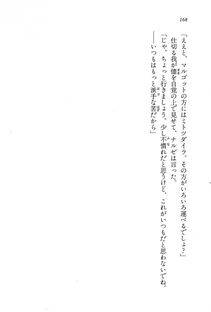 168
「ええと、マルゴットの方にはミトツダイラ。その方がいろいろ運べるでしょ？」
仕切る我が儘を自覚の上で見せて、ナルゼは言った。
「じゃ、ちょっと行きましょう。少し不慣れだと思うけど、これがいつもだと思わないでね。
――いつもはもっと派手な筈だから」